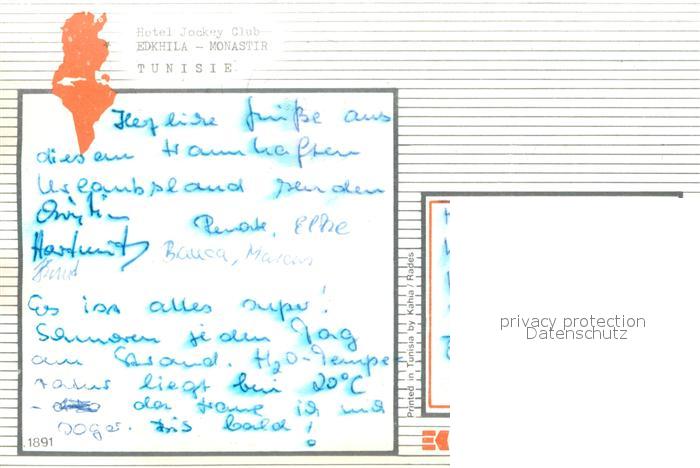 Hotel Jockey Club
EDKHILA - MONASTIR
TUNISIE
Herzliche Grüße aus
diesem traumhaften
Urlaubsland senden
Christin
Renate, Elke
Hartmut, Bianca, Marcus
Es ist alles super!
Schmoren jeden Tag
am Strand. H2O-Tempe-
ratur liegt bei 20°C
- der
sogar. Bis bald!
1891
Printed in Tunisia by Kahia / Rades
privacy protection
Datenschutz